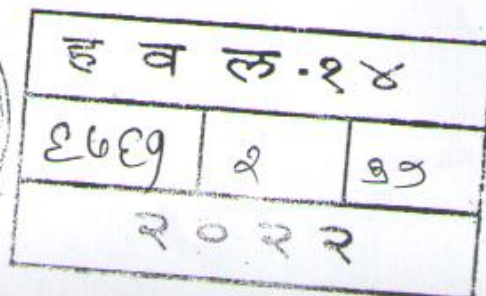 ह व ल.१४
६७६१ २
२०२२